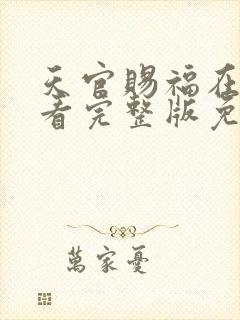 天官赐福在
看完整版免
萬家憂